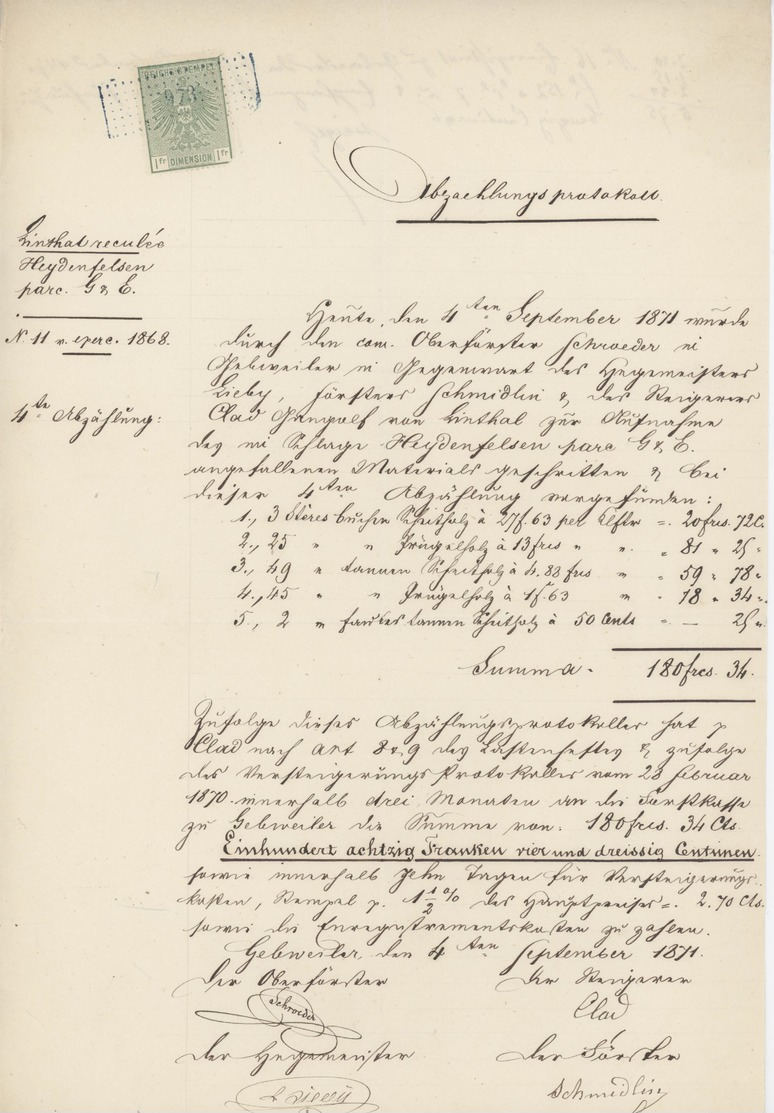 REICHSSTEMPEL
973
1 fr DIMENSION 1 fr
Abzaehlungsprotokoll.
Linthal reculée
Heydenfelsen
parc. G & E.
N. 11 v. exerc. 1868.
4te Abzählung:
Heute, den 4ten September 1871 wurde
durch den com. Oberförster Schroeder in
Gebweiler in Gegenwart des Hegemeisters
Lieby, Försters Schmidlin & des Steigerers
Clad Gangolf von Linthal zur Aufnahme
des im Schlage Heydenfelsen parc G & E.
angefallenen Materials geschritten & bei
dieser 4ten Abzählung vorgefunden:
1., 3 Stères buchen Scheitholz à 27f.63 per Klftr =. 20frcs. 72C.
2., 25 " " Prügelholz à 13 frcs " " " 81 " 25 "
3., 49 " tannen Scheitholz à 4.88 frcs " " 59 " 78 "
4., 45 " " Prügelholz à 1f.63 " " 18 " 34 "
5., 2 " faules tannen Scheitholz à 50 Cents " = — 25 "
Summa = 180frcs. 34.
Zufolge dieses Abzählungsprotokolles hat p
Clad nach Art 8 & 9 des Lastenheftes & zufolge
des Versteigerungs Protokolles vom 23 Februar
1870 innerhalb drei Monaten an die Forstkasse
zu Gebweiler die Summe von: 180frcs. 34 Cts.
Einhundert achtzig Franken vier und dreissig Centimen
sowie innerhalb zehn Tagen für Versteigerungs-
kosten, Stempel p. 1 1/2 % des Hauptpreises =. 2.70 Cts.
sowie die Enregistrementskosten zu zahlen.
Gebweiler, den 4ten September 1871.
Der Oberförster Der Steigerer
Schroeder Clad
Der Hegemeister Der Förster
Lieby Schmidlin